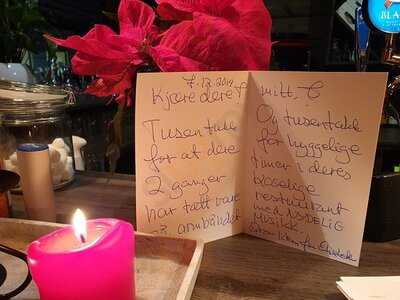 7.12.2019
Kjære dere
mitt,
Tusen takk
for at dere
2 ganger
har tatt vare
på armbåndet
Og tusen takk
for hyggelige
timer i deres
koselige
restaurant
med NYDELIG
MUSIKK.
BLA